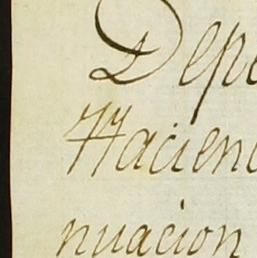 Depe
Hacien
nuacion